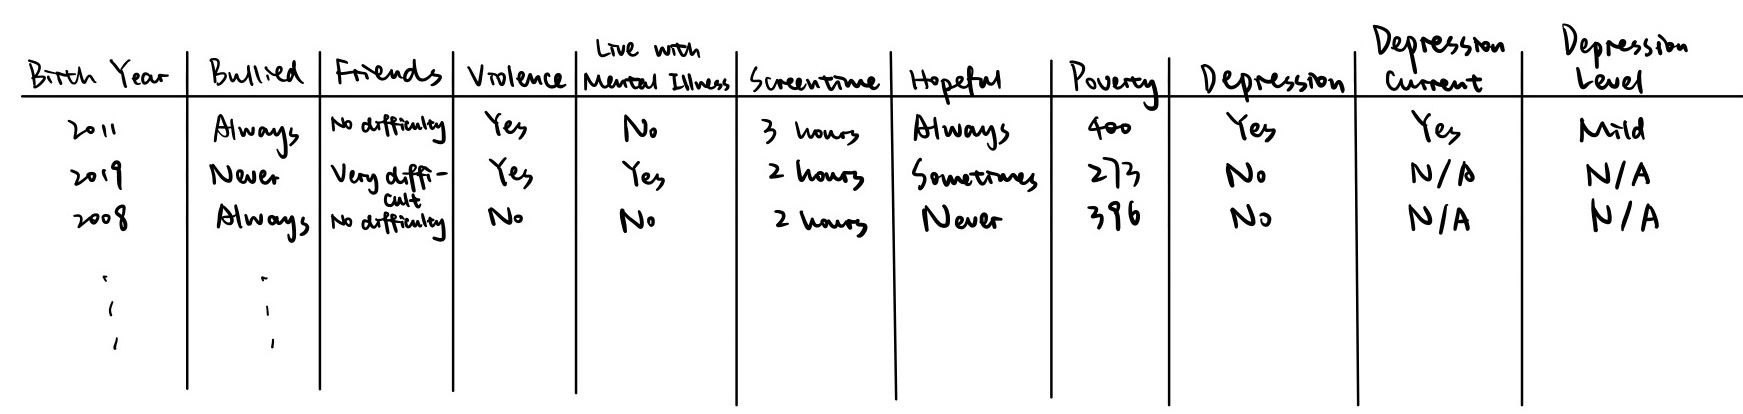 Birth Year Bullied Friends Violence Live with Mental Illness Screentime Hopeful Poverty Depression Depression Current Depression Level
2011 Always No difficulty Yes No 3 hours Always 400 Yes Yes Mild
2019 Never Very diffi-cult Yes Yes 2 hours Sometimes 273 No N/A N/A
2008 Always No difficulty No No 2 hours Never 396 No N/A N/A